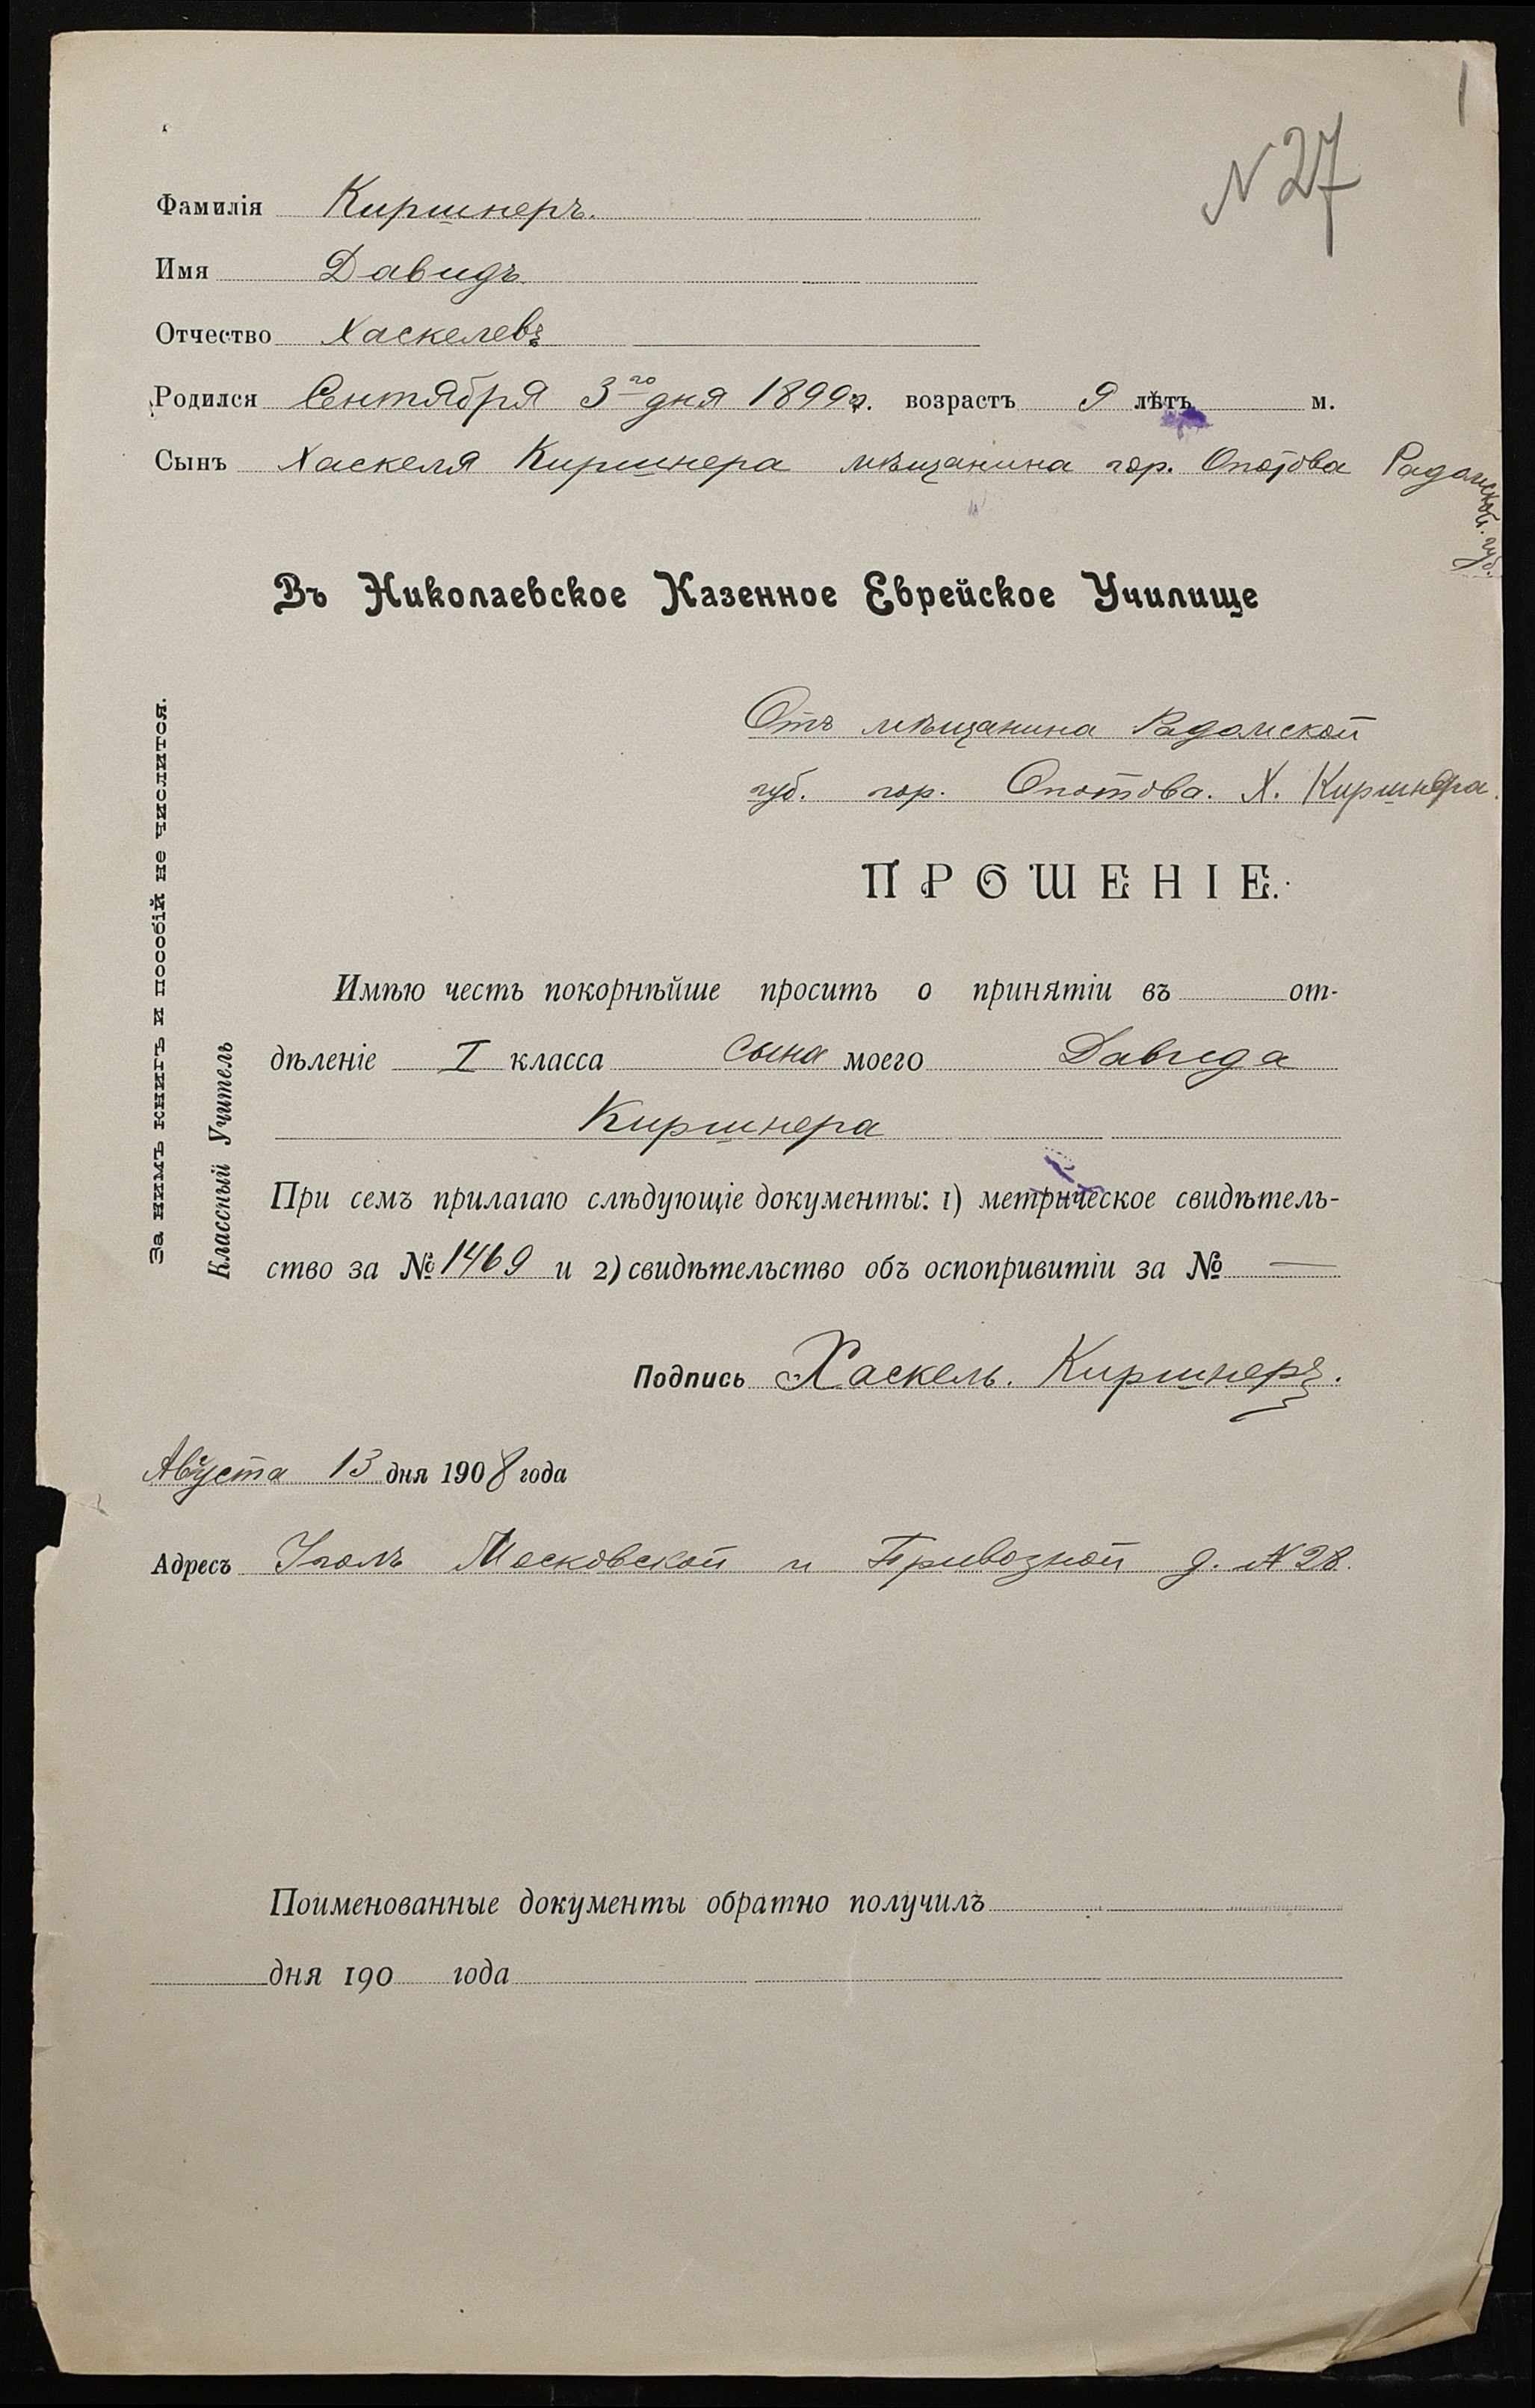 1
N 27
Фамилія Киршнеръ.
Имя Давидъ
Отчество Хаскелевъ
Родился Сентября 3го дня 1899 г. возрастъ 9 лѣтъ м.
Сынъ Хаскеля Киршнера мѣщанина гор. Опотова Радомской губ.
Въ Николаевское Казенное Еврейское Училище
Отъ мѣщанина Радомской
губ. гор. Опотова. Х. Киршнера.
ПРОШЕНІЕ.
Имѣю честь покорнѣйше просить о принятіи въ от-
дѣленіе I класса сына моего Давида
Киршнера
При семъ прилагаю слѣдующіе документы: 1) метрическое свидѣтель-
ство за № 1469 и 2) свидѣтельство объ оспопривитіи за № —
Подпись Хаскель. Киршнеръ.
Августа 13 дня 1908 года
Адресъ Уголъ Московской и Привозной д. № 28.
Поименованные документы обратно получилъ
дня 190 года
За нимъ книгъ и пособій не числится.
Классный Учитель